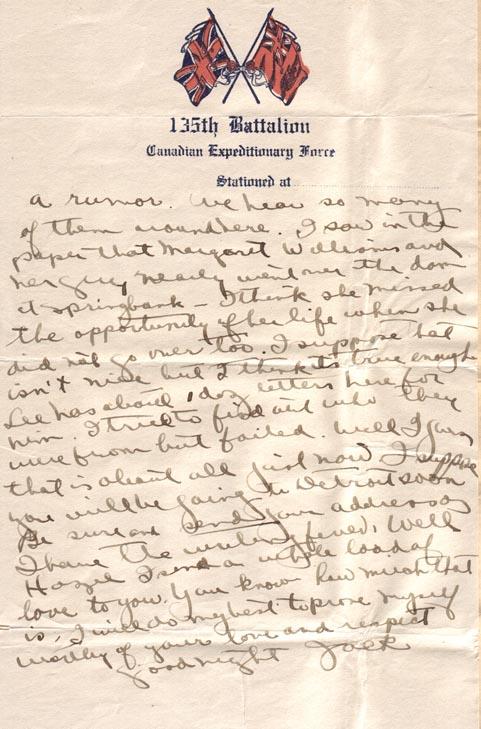 135th Battalion
Canadian Expeditionary Force
Stationed at
a rumor. We hear so many
of them around here. I saw in the
paper that Margaret Williams and
her guy nearly went over the dam
at Springbank – I think she missed
the opportunity of her life when she
did not go over too. I suppose that
isn't nice but I think its true enough
Lee has about 1 doz letters here for
him. I tried to find out who they
were from but failed. Well I guess
that is about all just now I suppose
you will be going to Detroit soon
Be sure and send your address as
I have the writing fever. Well
Hazel I send a whole load of
love to you. You know how much that
is, I will do my best to prove myself
worthy of your love and respect
Goodnight Jack